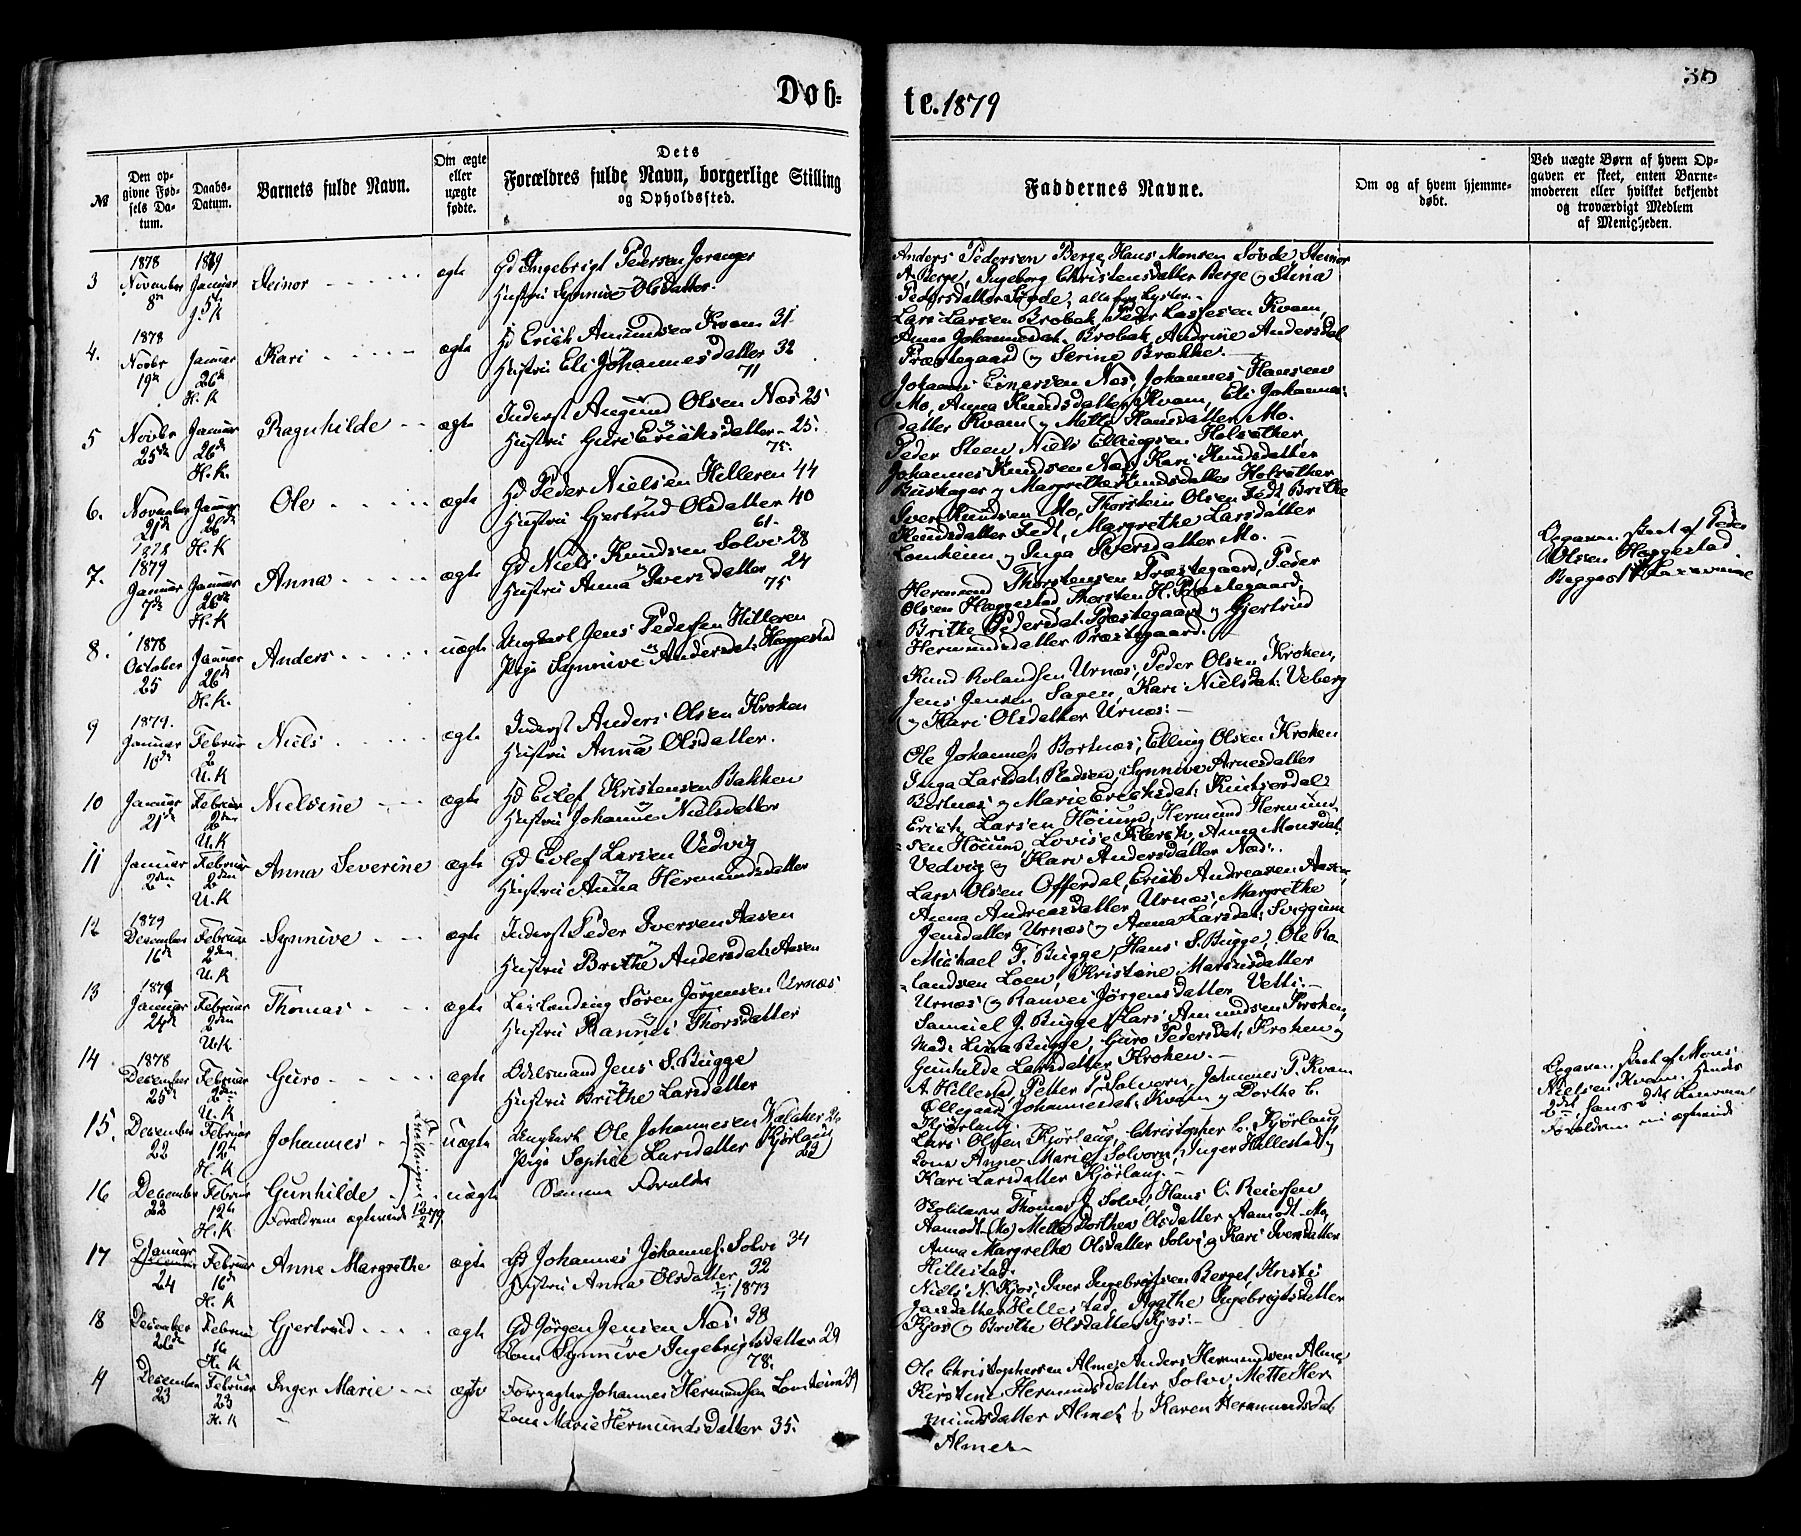 Døb=
te. 1879
36
№
Den opgivne Fødsels Datum.
Daabs-Datum.
Barnets fulde Navn.
Om ægte eller uægte fødte.
Dets
Forældres fulde Navn, borgerlige Stilling
og Opholdssted.
Faddernes Navne.
Om og af hvem hjemme-
døbt.
Ved uægte Børn af hvem Op-
gaven er skeet, enten Barne-
moderen eller hvilket bekjendt
og troværdigt Medlem
af Menigheden.
3 1878 November 8 1879 Januar 5 J. K Steinor ægte Gd Ingebrigt Pedersen Joranger
Hustru Synnive Olsdatter.
Anders Pedersen Berge, Hans Monsen Søvde Steinor
A Berge, Ingeborg Christensdatter Berge og Stina
Pedersdatter Søvde, alle fra Lyster.
4. 1878 Novbr 19 Januar 26 H. K Kari ægte Erich Amundsen Kvam 31
Hustru Eli Johannesdatter 32
71
Lars Larsen Brobak, Peder Lassesen Kvam,
Anna Johannesdat. Brobak, Andrine Andersdat
Præstegaard og Serine Brække.
5 Novbr 25 Januar 26 H. K. Ragnhilde ægte Inderst Amund Olsen Næs 25
Hustru Guri Erichsdatter 25.
75.
Johannes Einarsen Næs, Johannes Hansen
Mo, Anna Knudsdatter Kvam, Eli Johannes-
datter Kvam og Mette Hansdatter Mo.
6. November 21 1878 Januar 26 H. K Ole ægte Gd Peder Nielsen Hilleren 44
Hustru Gjertrud Olsdatter 40
61.
Peder Steen, Niels Ellingsen Holsether,
Johannes Knudsen Næs, Kari Knudsdatter
Buskager og Margrethe Knudsdatter Holsether
7. 1879 Januar 7 Januar 26 H. K Anna ægte Gd Niels Knudsen Solvi 28
Hustru Anna Iversdatter 24
75
Iver Knudsen Mo, Thorstein Olsen Fedt, Brithe
Knudsdatter Fedt, Margrethe Larsdatter
Lomheim og Inga Iversdatter Mo.
8. 1878 October 25 Januar 26 H. K. Anders uægte Ungkarl Jens Pedersen Hilleren
Pige Synnive Andersdat. Haggestad
Hermund Thorstensen Præstegaard, Peder
Olsen Haggestad, Thorsten H. Præstegaard,
Brithe Pedersdat. Præstegaard og Gjertrud
Hermundsdatter Præstegaard.
Opgaven skeet af Peder
Olsen Haggestad.
9 1879. Januar 10 Februar 2 U. K Niels ægte Inderst Anders Olsen Kroken
Hustru Anna Olsdatter.
Knud Rolandsen Urnæs, Peder Olsen Kroken,
Jens Jensen Sagen, Kari Nielsdat. Veberg
og Kari Olsdatter Urnæs.
10 Januar 21 Februar 2 U. K Nielsine ægte Eilef Kristensen Bakken
Hustru Johanne Nielsdatter
Ole Johannes. Bortnæs, Elling Olsen Kroken
Inga Larsdat. Rødsen, Synnive Arnesdatter
Bortnæs og Marie Erichsdat. Kintsørdal
11 Januar 2 Februar 2 U. K Anna Severine ægte Gd Eilef Larsen Vedvig
Hustru Anna Hermundsdatter
Erich Larsen Høium, Hermund Hermund-
sen Høium, Lovise Klerck, Anna Monsdat.
Vedvig og Kari Andersdatter Næs.
12 1879 Desember 16 Februar 2 U. K Synnive ægte Inderst Peder Iversen Aasen
Hustru Brithe Andersdat. Aasen
Lars Olsen Offerdal, Erich Andreasen Aasen,
Anna Andreasdatter Urnæs, Margrethe
Jensdatter Urnæs og Anna Larsdat. Svæggum
13 1879 Januar 24 Februar 2 U. K. Thomas ægte Leilænding Søren Jørgensen Urnæs
Hustru Rannei Thorsdatter
Michael F. Bugge, Hans S. Bugge, Ole Ro-
landsen Loen, Kristine Mariusdatter
Urnæs og Ranvei Jørgensdatter Vetti.
14 1878 Desember 25 Februar 2 U. K Guro ægte Odelsmand Jens S. Bugge
Hustru Brithe Larsdatter
Samuel J. Bugge, Lars Amundsen Kroken,
Mad. Lina Bugge, Guro Pedersdat. Kroken og
Gunhilde Larsdatter Kroken.
15. Desember 22 Februar 12 H. K Johannes uægte Ungkarl Ole Johannesen Kalaker 26
Pige Sophie Larsdatter Kjørlaug 23
Tvillinger
A. Hillestad, Petter P. Solvorn, Johannes P. Kvam
Ellegaard Johannesdat. Kvam og Dorthe C.
Kjørlaug.
Opgaven skeet af Mons
Nielsen Kvam.
16 Desember 22 Februar 12 H. K Gunhilde uægte Samme Forældre
Forældrene ægteviede
Lars Olsen Kjørlaug, Christopher C. Kjørlaug
Kona Anne Marie Solvorn, Inger Hillestad og
Kari Larsdatter Kjørlaug.
17 Januar 24 Februar 16 H. K Anne Margrethe ægte Johannes Johannes. Solvi 34
Hustru Anna Olsdatter 32
1873
Skolelærer Thomas J. Solvi, Hans C. Reiersen
Aamodt (Mo) Mette Dorthea Olsdatter Aamodt,
Anna Margrethe Olsdatter Solvi og Kari Iversdatter
Hillestad.
18 Desember 26 Februar 16 H. K Gjertrud ægte Gd Jørgen Jensen Næs 38
Kona Synnive Ingebrigtsdatter 29
78.
Niels N. Kjos, Iver Ingebrigtsen Berget, Kristi
Jensdatter Hillestad, Agathe Ingebrigtsdatter
Kjos og Brithe Olsdatter Kjos.
Desember 23 Februar 23 H. K Inger Marie ægte Forpagter Johannes Hermundsen Lomheim 39
Kona Marie Hermundsdatter 35.
Ole Christophersen Alme, Anders Hermundsen Alme,
Kirstene Hermundsdatter Solvi, Mette Her-
mundsdatter Alme og Karen Hermundsdat
Alme